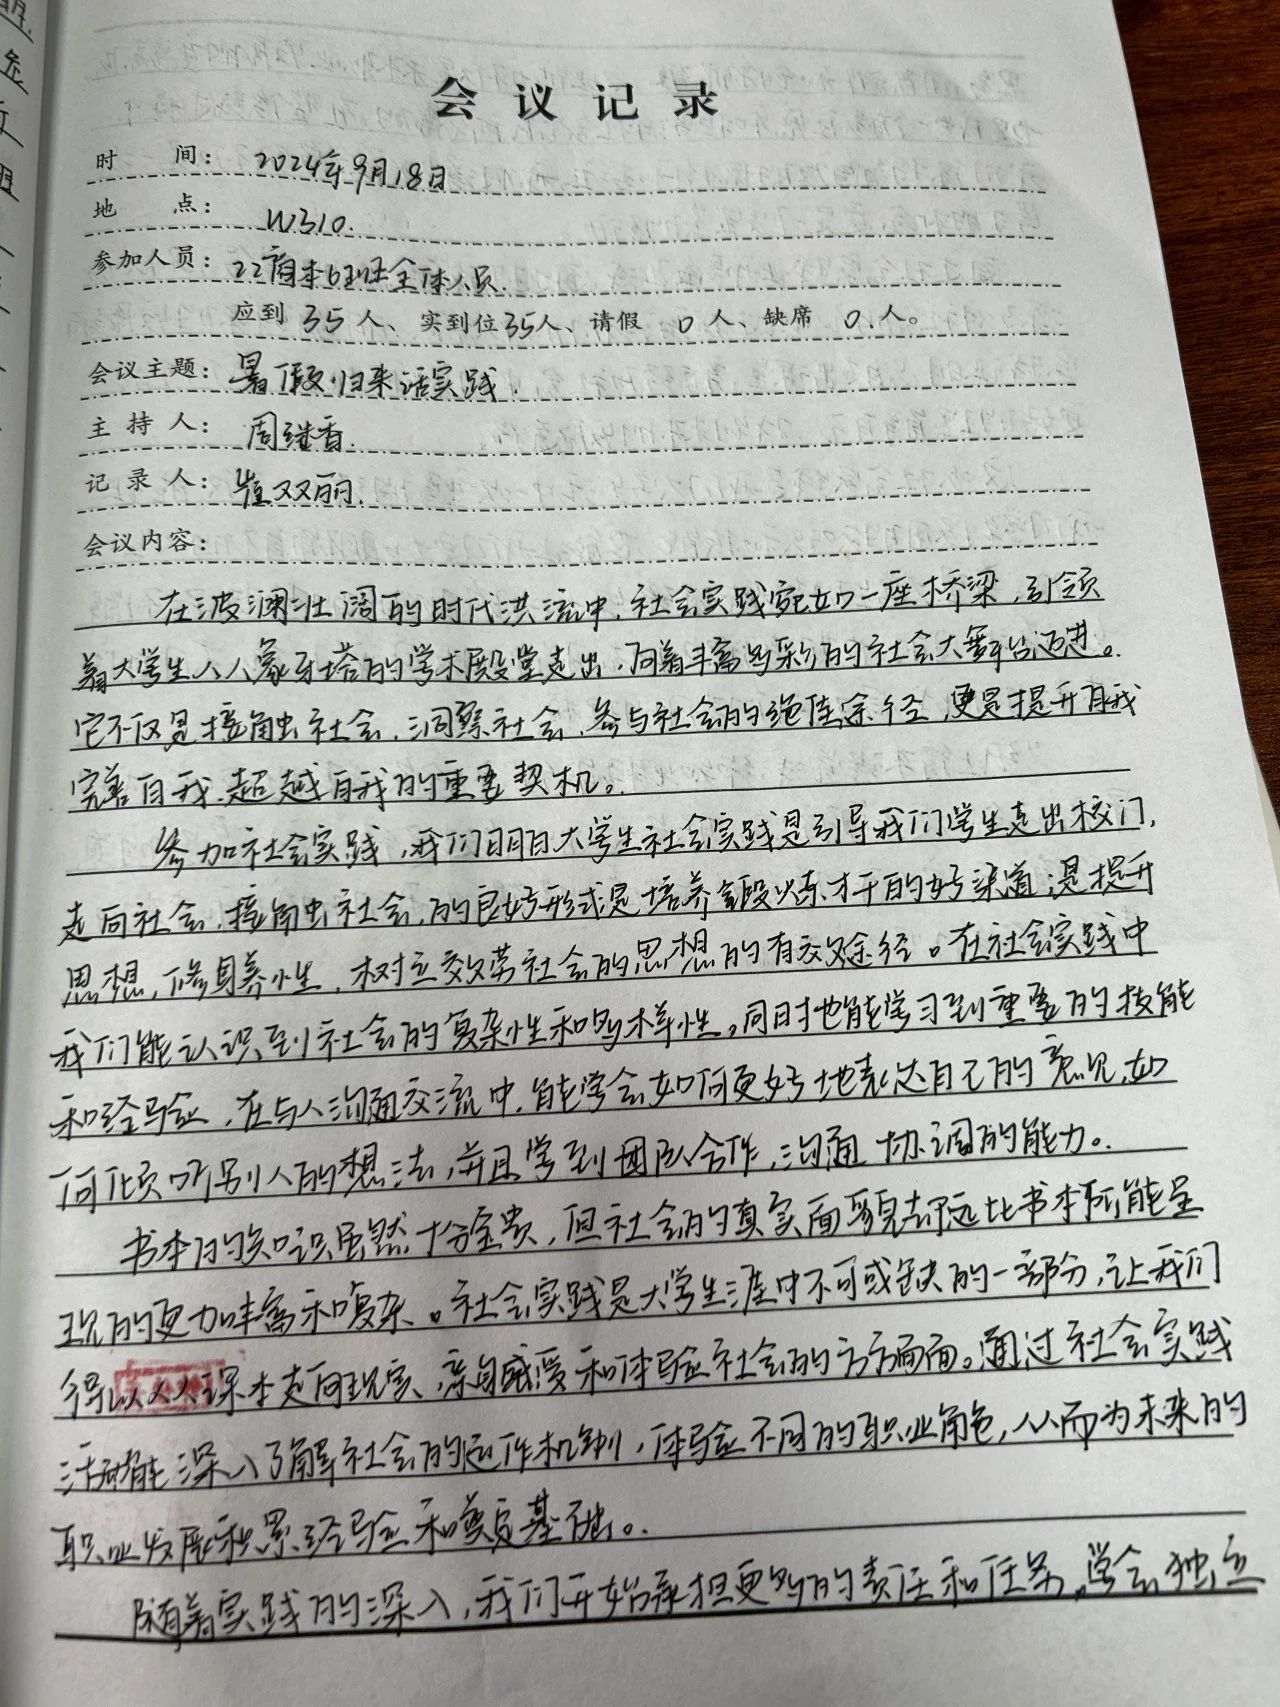 会议记录
时 间: 2024年9月18日
地 点: W310.
参加人员: 22商本6班全体人员.
应到 35 人、实到位35人、请假 0 人、缺席 0.人。
会议主题: 暑假归来话实践.
主 持 人: 周继香.
记 录 人: 崔双丽.
会议内容:
在波澜壮阔的时代洪流中,社会实践宛如一座桥梁,引领
着大学生从象牙塔的学术殿堂走出,向着丰富多彩的社会大舞台迈进。
它不仅是接触社会,洞察社会,参与社会的绝佳途径,更是提升自我
完善自我.超越自我的重要契机。
参加社会实践,我们明白大学生社会实践是引导我们学生走出校门,
走向社会,接触社会,的良好形式是培养锻炼才干的好渠道;是提升
思想,修身养性,树立效劳社会的思想的有效途径。在社会实践中
我们能认识到社会的复杂性和多样性。同时也能学习到重要的技能
和经验,在与人沟通交流中,能学会如何更好地表达自己的意见,如
何倾听别人的想法,并且学到团队合作,沟通协调的能力。
书本的知识虽然十分宝贵,但社会的真实面貌却远比书本所能呈
现的更加丰富和复杂。社会实践是大学生涯中不可或缺的一部分,让我们
得以从课本走向现实、亲身感受和体验社会的方方面面。通过社会实践
活动能深入了解社会的运作机制,体验不同的职业角色,从而为未来的
职业发展积累经验和奠定基础。
随着实践的深入,我们开始承担更多的责任和任务,学会独立